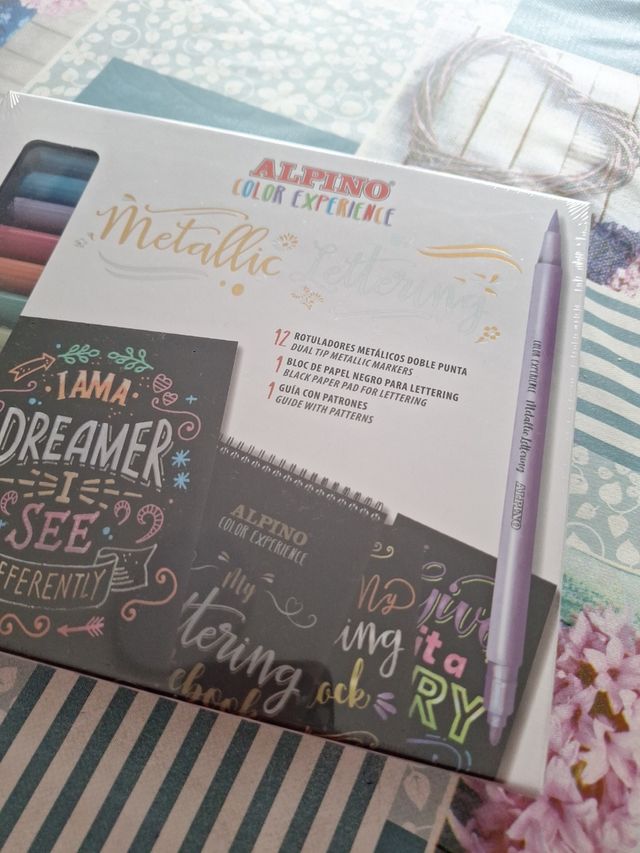 ALPINO
COLOR EXPERIENCE
Metallic Lettering
12 ROTULADORES METÁLICOS DOBLE PUNTA
DUAL TIP METALLIC MARKERS
1 BLOC DE PAPEL NEGRO PARA LETTERING
BLACK PAPER PAD FOR LETTERING
1 GUÍA CON PATRONES
GUIDE WITH PATTERNS
COLOR EXPERIENCE Metallic Lettering ALPINO
I AM A
DREAMER
I
SEE
FFERENTLY
ALPINO
COLOR EXPERIENCE
My
ttering
ebook
My
ing
ock
give
it a
RY